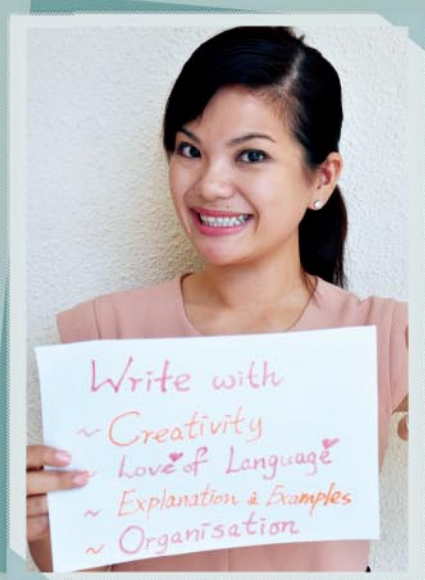 Write with
~ Creativity
~ Love of Language
~ Explanation & Examples
~ Organisation